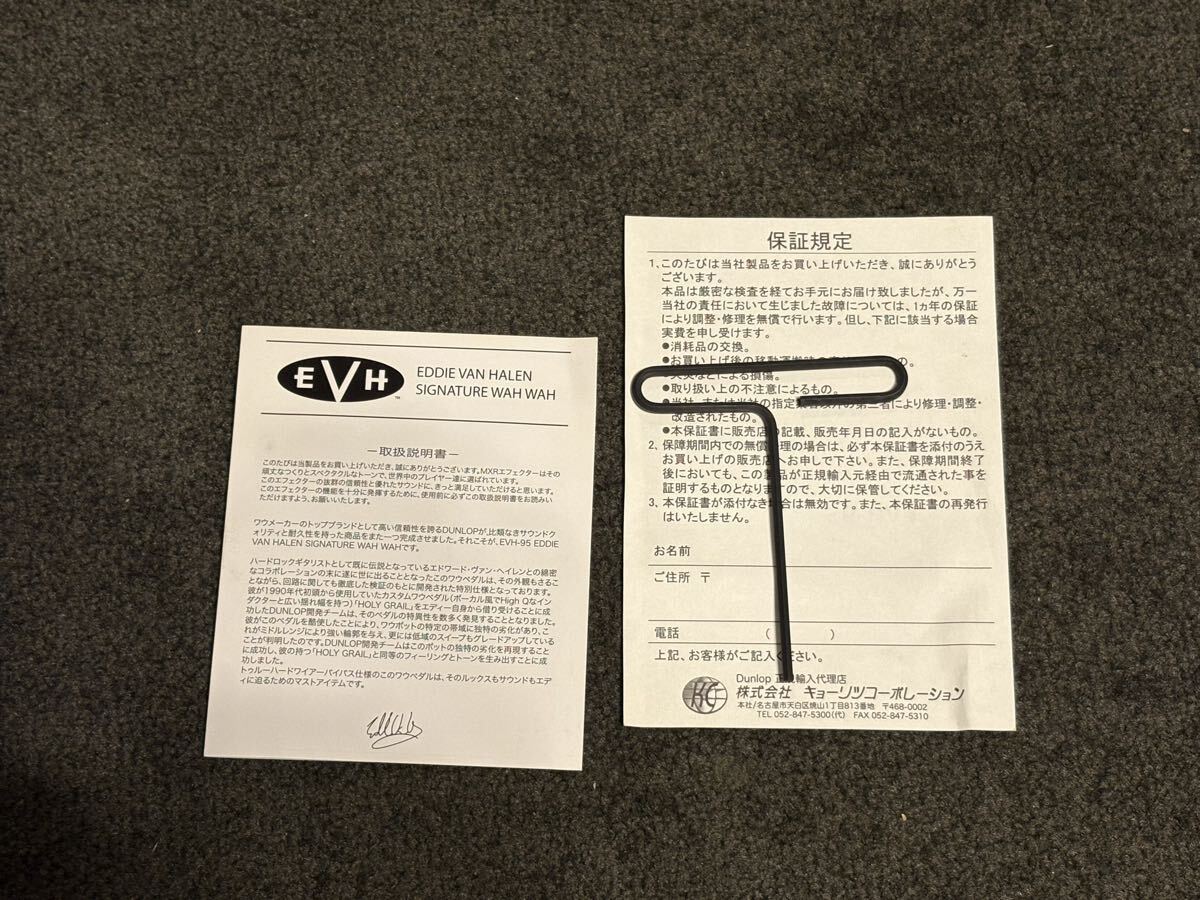 EVH
EDDIE VAN HALEN
SIGNATURE WAH WAH
－取扱説明書－
このたびは当製品をお買い上げいただき、誠にありがとうございます。MXRエフェクターはその
頑丈なつくりとスペクタクルなトーンで、世界中のプレイヤー達に選ばれています。
このエフェクターの抜群の信頼性と優れたサウンドに、きっと満足していただけると思います。
このエフェクターの機能を十分に発揮するために、使用前に必ずこの取扱説明書をお読みい
ただけますよう、お願いいたします。
ワウメーカーのトップブランドとして高い信頼性を誇るDUNLOPが、比類なきサウンドク
ォリティと耐久性を持った商品をまた一つ完成させました。それこそが、EVH-95 EDDIE
VAN HALEN SIGNATURE WAH WAHです。
ハードロックギタリストとして既に伝説となっているエドワード・ヴァン・ヘイレンとの綿密
なコラボレーションの末に遂に世に出ることとなったこのワウペダルは、その外観もさるこ
とながら、回路に関しても徹底した検証のもとに開発された特別仕様となっております。
彼が1990年代初頭から使用していたカスタムワウペダル(ボーカル風でHigh Qなイン
ダクターと広い揺れ幅を持つ)「HOLY GRAIL」をエディー自身から借り受けることに成
功したDUNLOP開発チームは、そのペダルの特異性を数多く発見することとなりました。
彼がこのペダルを酷使したことにより、ワウポットの特定の帯域に独特の劣化があり、こ
れがミドルレンジにより強い輪郭を与え、更には低域のスイープもグレードアップしている
ことが判明したのです。DUNLOP開発チームはこのポットの独特の劣化を再現すること
に成功し、彼の持つ「HOLY GRAIL」と同等のフィーリングとトーンを生み出すことに成
功しました。
トゥルーハードワイアーバイパス仕様のこのワウペダルは、そのルックスもサウンドもエデ
ィに迫るためのマストアイテムです。
保証規定
1、このたびは当社製品をお買い上げいただき、誠にありがとう
ございます。
本品は厳密な検査を経てお手元にお届け致しましたが、万一
当社の責任において生じました故障については、1ヵ年の保証
により調整・修理を無償で行います。但し、下記に該当する場合
実費を申し受けます。
●消耗品の交換。
●お買い上げ後の移動運搬時の の。
による損傷。
●取り扱い上の不注意によるもの。
●当社、または当社の指定 の第三者により修理・調整・
改造されたもの。
●本保証書に販売店の記載、販売年月日の記入がないもの。
2、保障期間内での無償修理の場合は、必ず本保証書を添付のうえ
お買い上げの販売店へお申し下さい。また、保障期間終了
後においても、この製品が正規輸入元経由で流通された事を
証明するものとなりますので、大切に保管してください。
3、本保証書が添付なき場合は無効です。また、本保証書の再発行
はいたしません。
お名前
ご住所 〒
電話 （ ）
上記、お客様がご記入ください。
Dunlop 正規輸入代理店
KC 株式会社 キョーリツコーポレーション
本社/名古屋市天白区焼山1丁目813番地 〒468-0002
TEL 052-847-5300(代) FAX 052-847-5310